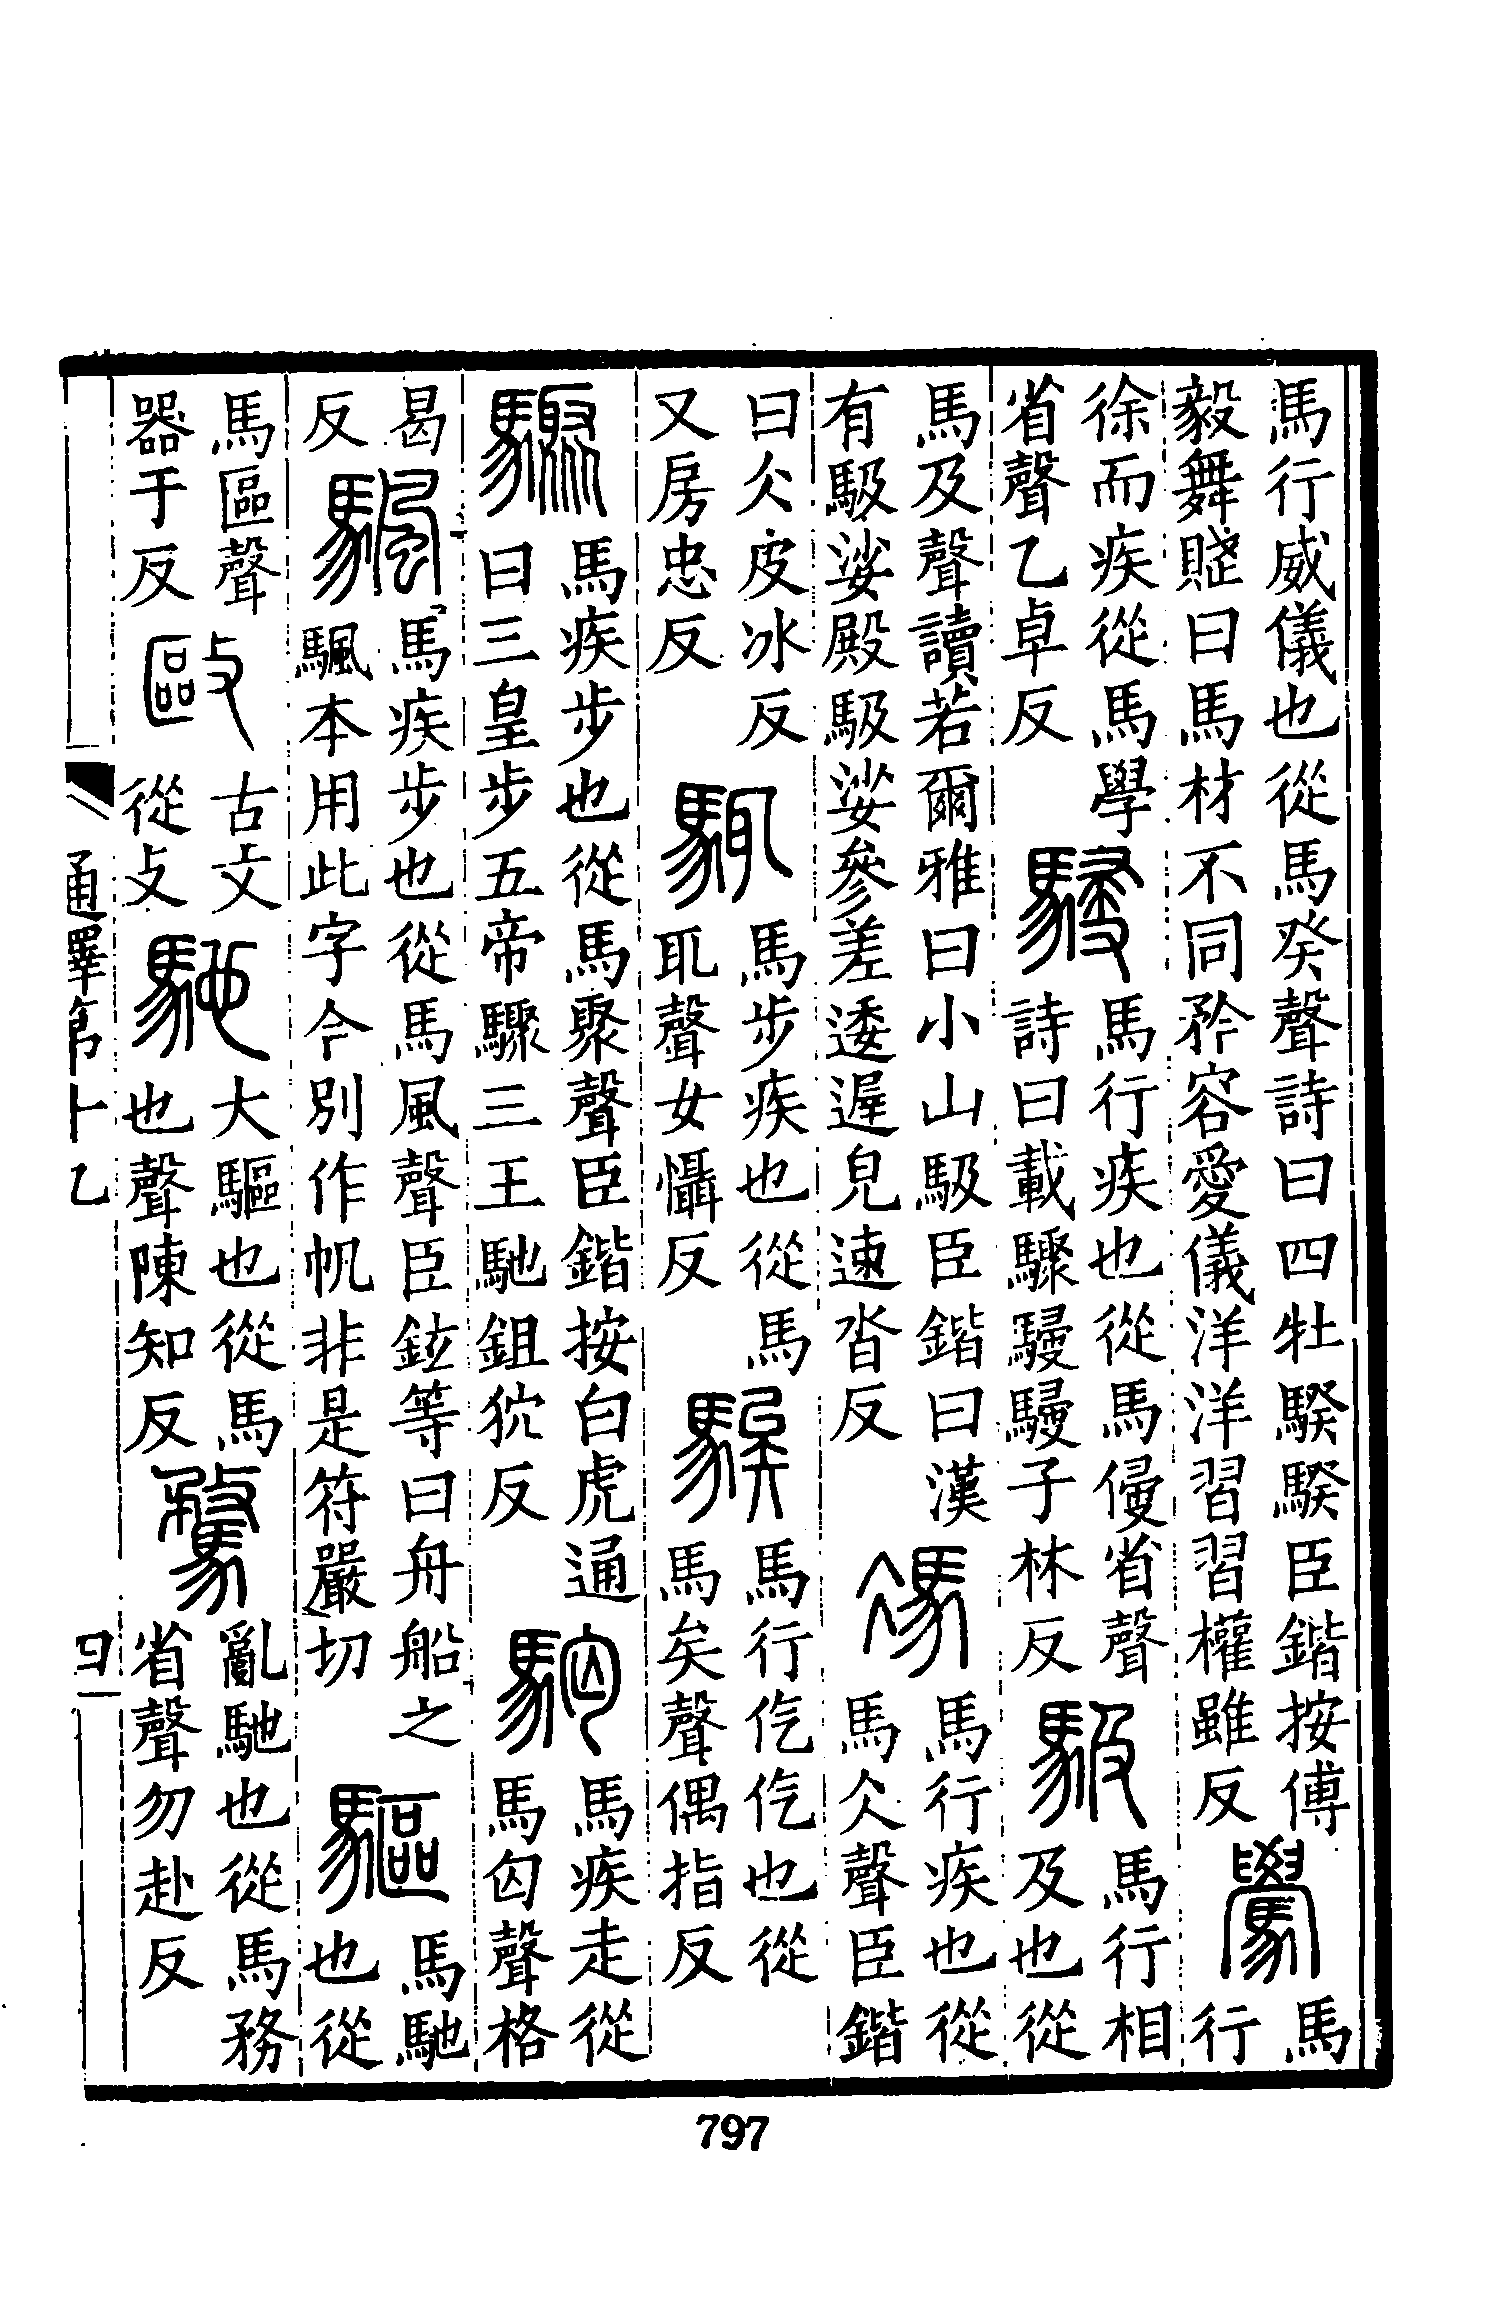 馬行威儀也從馬癸聲詩曰四牡騤騤臣鍇按傅
毅舞賦曰馬材不同矜容愛儀洋洋習習權雖反
𩦡
馬
行
徐而疾從馬學
省聲乙卓反
駸
馬行疾也從馬侵省聲
詩曰載驟駸駸子林反
馺
馬行相
及也從
馬及聲讀若爾雅曰小山馺臣鍇曰漢
有馺娑殿馺娑參差逶遟皃速沓反
馮
馬行疾也從
馬仌聲臣鍇
曰仌皮冰反
又房忠反
馬步疾也從馬
耴聲女懾反
騃
馬行仡仡也從
馬矣聲偶指反
驟
馬疾步也從馬聚聲臣鍇按白虎通
曰三皇步五帝驟三王馳鉏狖反
馬疾走從
馬匃聲格
曷
反
颿
馬疾步也從馬風聲臣鉉等曰舟船之
颿本用此字今別作帆非是符嚴切
驅
馬馳
也從
馬區聲
器于反
敺
古文
從攴
馳
大驅也從馬
也聲陳知反
騖
亂馳也從馬務
省聲勿赴反
通釋第十九
四
797